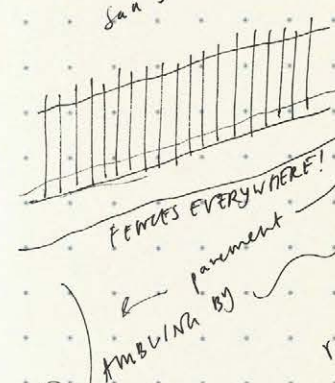 San
FENCES EVERYWHERE!
pavement
AMBLING BY